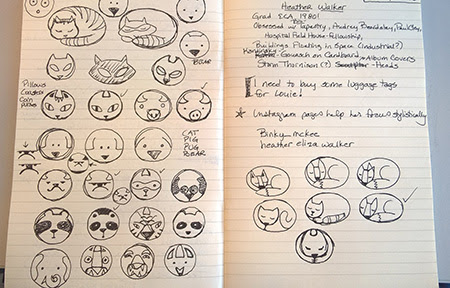 BEAR
Pillows
Coin
purses
CAT
PIG
PUG
BEAR
Heather Walker
Grad. SCA 1980!
Obsessed w/ tapestry, Audrey Beardsley, Paul Clay,
Hospital Field House Fellowship,
Buildings Floating in Space (industrial?)
Gouach on Cardboard Album Covers
Storm Thornison (?) Heads
I need to buy some luggage tags
for Louie!
* Instagram pages help her focus stylistically
Binky mckee
heather eliza walker